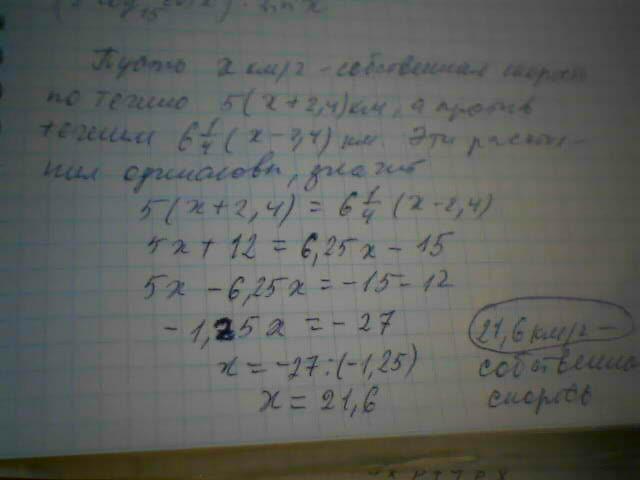 Пусть x км/ч - собственная скорость
по течению 5(x+2,4)км, а против
течения 6 1/4 (x-2,4) км. Эти расстоя-
ния одинаковы, значит
5(x+2,4) = 6 1/4 (x-2,4)
5x+12 = 6,25x-15
5x-6,25x=-15-12
-1,25x = -27
x=-27:(-1,25)
x = 21,6
21,6 км/ч -
собственная
скорость